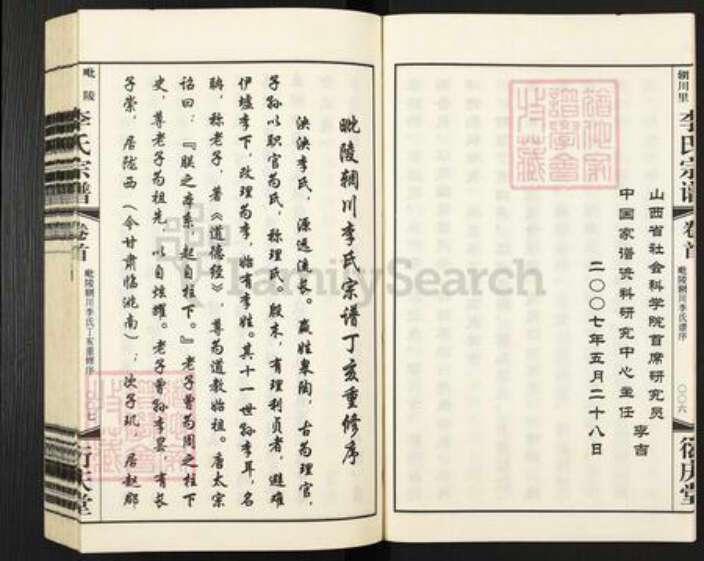 辋川里
李氏宗谱
卷首
毗陵辋川李氏谱序
〇〇六
衍庆堂
山西省社会科学院首席研究员
中国家谱资料研究中心主任
李吉
二〇〇七年五月二十八日
毗陵辋川李氏宗谱丁亥重修序
泱泱李氏，源远流长。嬴姓皋陶，古为理官，
子孙以职官为氏，称理氏。殷末，有理利贞者，避难
伊墟李下，改理为李，始有李姓。其十一世孙李耳，名
聃，称老子，著《道德经》，尊为道教始祖。唐太宗
诏曰：『朕之本系，起自柱下。』老子曾为周之柱下
史，尊老子为祖先，以自炫耀。老子曾孙李昙，有长
子崇，居陇西（今甘肃临洮南）；次子玑，居赵郡，
毗陵
李氏宗谱
卷首
毗陵辋川李氏丁亥重修序
衍庆堂
FamilySearch